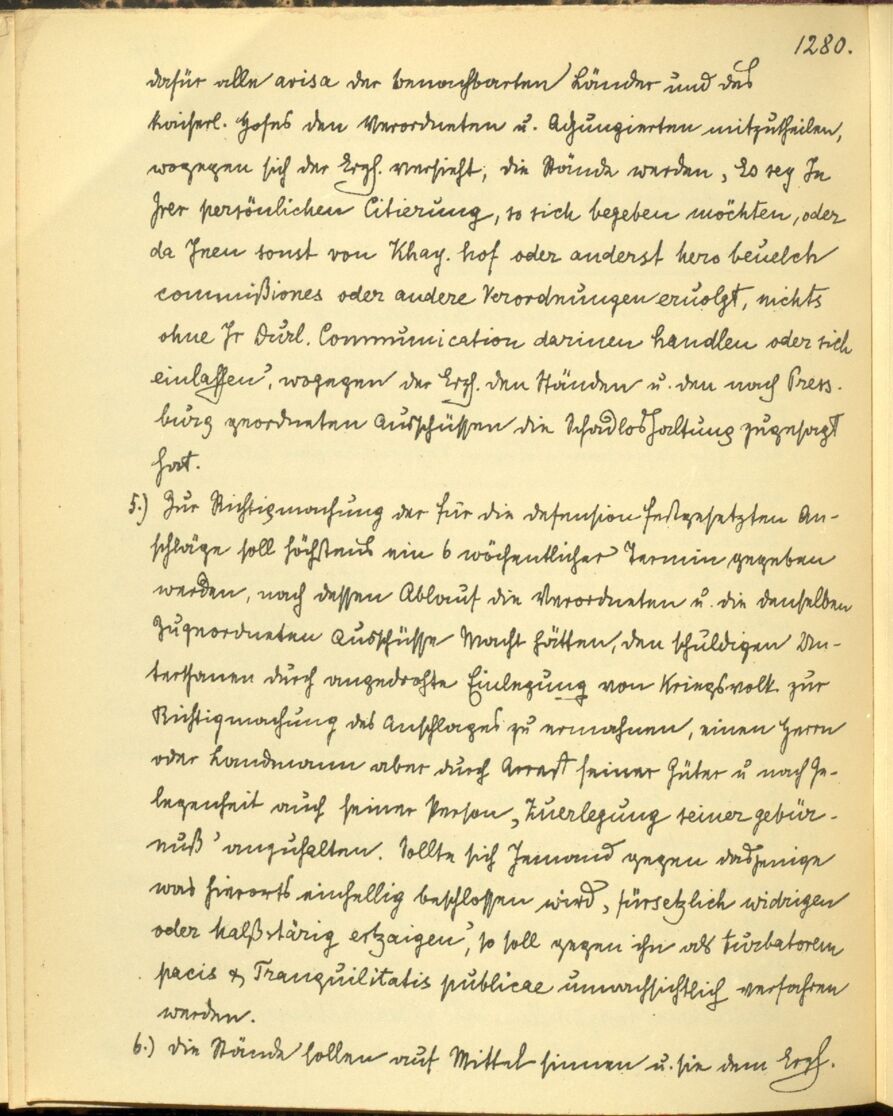 1280.
dafür alle avisa der benachbarten Länder und des
kaiserl. Hofes den Verordneten u. Adjungierten mitzutheilen,
wogegen sich der Erzh. versieht, die Stände werden „Es sey In
Irer persönlichen Citierung, so sich begeben möchten, oder
da Inen sonst von Khay. hof oder anderst hero beuelch
commißiones oder andere Verordnungen eruolgt, nichts
ohne Ir Durl. Communication darinen handlen oder sich
einlassen“, wogegen der Erzh. den Ständen u. den nach Press-
burg geordneten Ausschüssen die Schadloshaltung zugesagt
hat.
5.) Zur Richtigmachung der für die defension festgesetzten An-
schläge soll höchstens ein 6 wöchentlicher Termin gegeben
werden, nach dessen Ablauf die Verordneten u. die denselben
zugeordneten Ausschüsse Macht hätten, den schuldigen Un-
terthanen durch angedrohte Einlegung von Kriegsvolk zur
Richtigmachung des Anschlages zu ermahnen, einen Herrn
oder Landmann aber durch Arrest seiner Güter u nach Ge-
legenheit auch seiner Person „Zuerlegung seiner gebür-
nuß“ anzuhalten. Sollte sich Jemand gegen dasjenige
was hierorts einhellig beschlossen wird, „fürsetzlich widrigen
oder halßstärig ertzaigen“, so soll gegen ihn als turbatorem
pacis & Tranquilitatis publicae unnachsichtlich verfahren
werden.
6.) die Stände sollen auf Mittel sinnen u. sie dem Erzh.